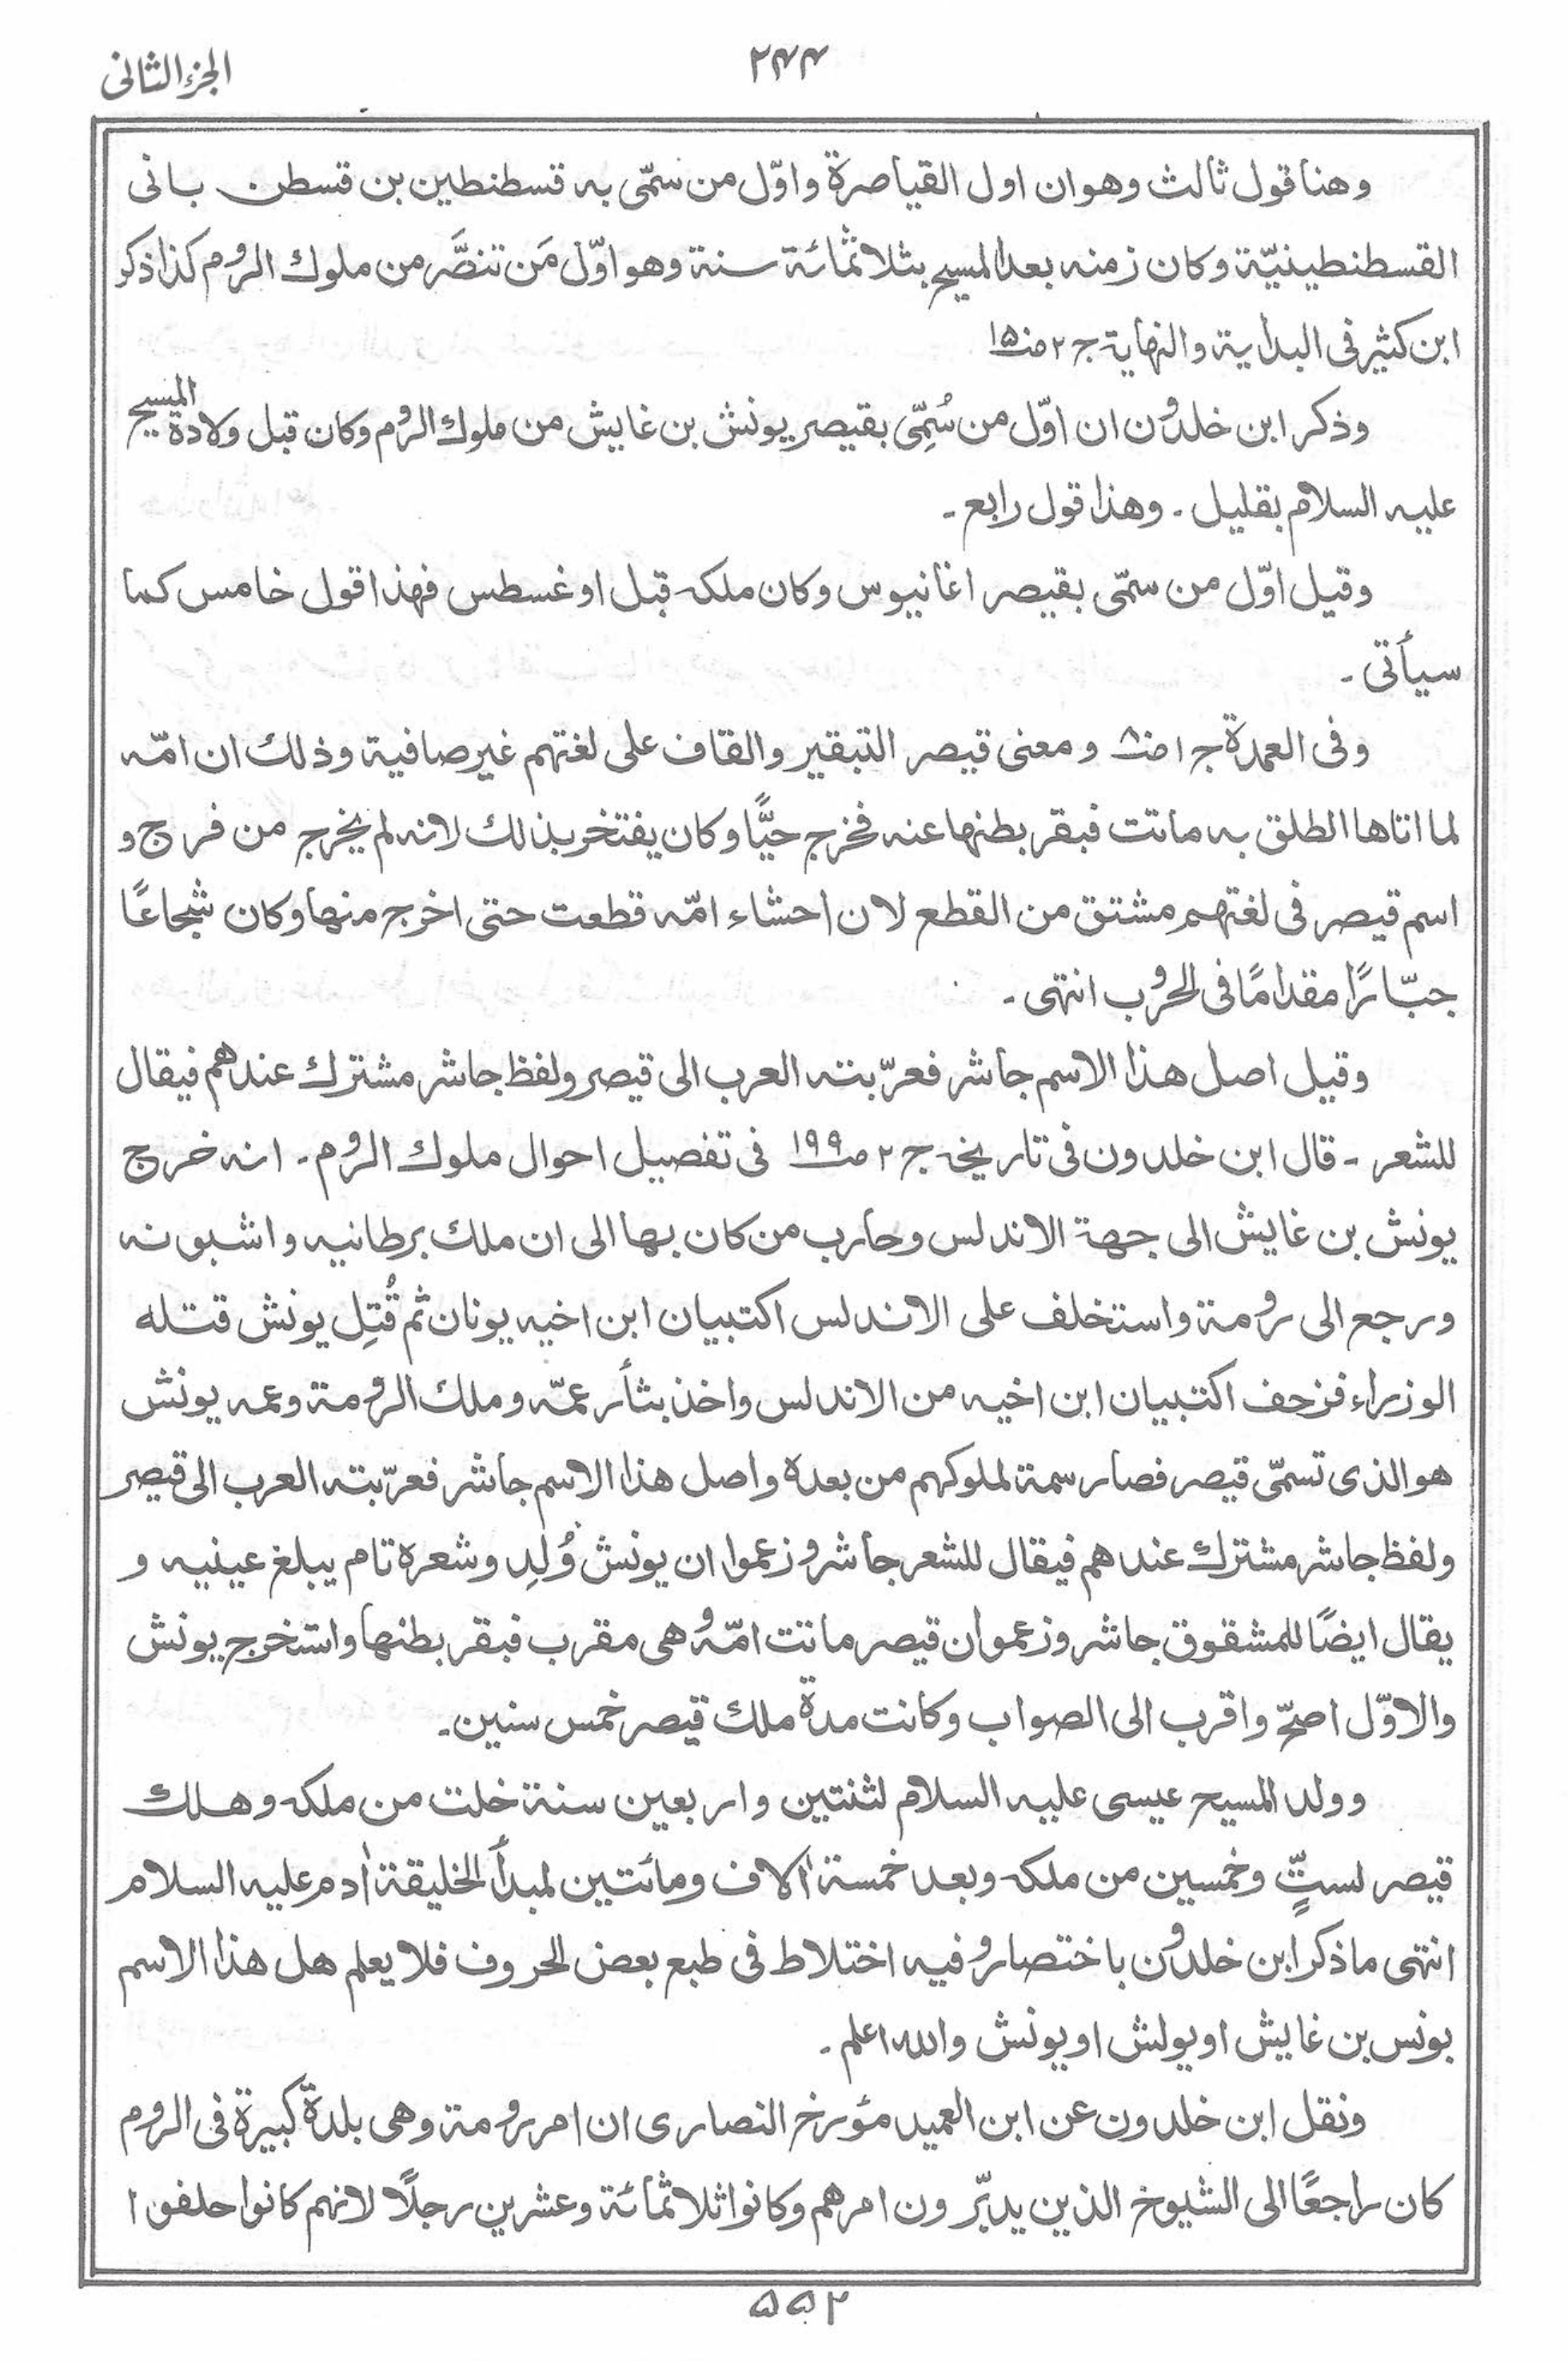 الجزء الثانی
۲۴۴
وهنا قول ثالث وهو ان اول القياصرة واوّل من سمّی به قسطنطين بن قسطن بانی
القسطنطينيّة وكان زمنه بعد المسيح بثلاثمائة سنة وهو اوّل مَن تنصَّر من ملوك الروم كذا ذكر
ابن كثير فی البداية والنهاية ج ۲ ص۱۵
وذكر ابن خلدون ان اوّل من سُمِّی بقيصر يونش بن غايش من ملوك الروم وكان قبل ولادة المسيح
عليه السلام بقليل ۔ وهذا قول رابع ۔
وقيل اوّل من سمّی بقيصر اغانيوس وكان ملكه قبل اوغسطس فهذا قول خامس كما
سيأتی ۔
وفی العمدة ج ۱ ص۸ ومعنی قيصر التبقير والقاف علی لغتهم غير صافية وذلك ان امّه
لما اتاها الطلق به ماتت فبقر بطنها عنه فخرج حيًّا وكان يفتخر بذلك لانه لم يخرج من فرج و
اسم قيصر فی لغتهم مشتق من القطع لان احشاء امّه قطعت حتی اخرج منها وكان شجاعًا
جبّارًا مقدامًا فی الحروب انتهی ۔
وقيل اصل هذا الاسم جاشر فعرّبته العرب الی قيصر ولفظ جاشر مشترك عندهم فيقال
للشعر ۔ قال ابن خلدون فی تاريخه ج ۲ ص۱۹۹ فی تفصيل احوال ملوك الروم ۔ انه خرج
يونش بن غايش الی جهة الاندلس وحارب من كان بها الی ان ملك برطانيه واشبونه
ورجع الی رومة واستخلف علی الاندلس اكتبيان ابن اخيه يونان ثم قُتِل يونش قتله
الوزراء فزحف اكتبيان ابن اخيه من الاندلس واخذ بثأر عمّه وملك الرومة وعمه يونش
هو الذی تسمّی قيصر فصار سمة لملوكهم من بعده واصل هذا الاسم جاشر فعرّبته العرب الی قيصر
ولفظ جاشر مشترك عندهم فيقال للشعر جاشر وزعموا ان يونش وُلِد وشعره تام يبلغ عينيه و
يقال ايضًا للمشقوق جاشر وزعموا ان قيصر ماتت امّه وهی مقرب فبقر بطنها واستخرج يونش
والاوّل اصحّ واقرب الی الصواب وكانت مدة ملك قيصر خمس سنين۔
وولد المسيح عيسی عليه السلام لثنتين واربعين سنة خلت من ملكه وهلك
قيصر لستٍّ وخمسين من ملكه وبعد خمسة اٰلاف ومائتين لمبدأ الخليقة اٰدم عليه السلام
انتهی ما ذكر ابن خلدون باختصار وفيه اختلاط فی طبع بعض الحروف فلا يعلم هل هذا الاسم
بونس بن غايش او يولش او يونش والله اعلم ۔
ونقل ابن خلدون عن ابن العميد مؤرخ النصاری ان امر رومة وهی بلدة كبيرة فی الروم
كان راجعًا الی الشيوخ الذين يدبّرون امرهم وكانوا ثلاثمائة وعشرين رجلًا لانهم كانوا حلفوا
۵۵۲